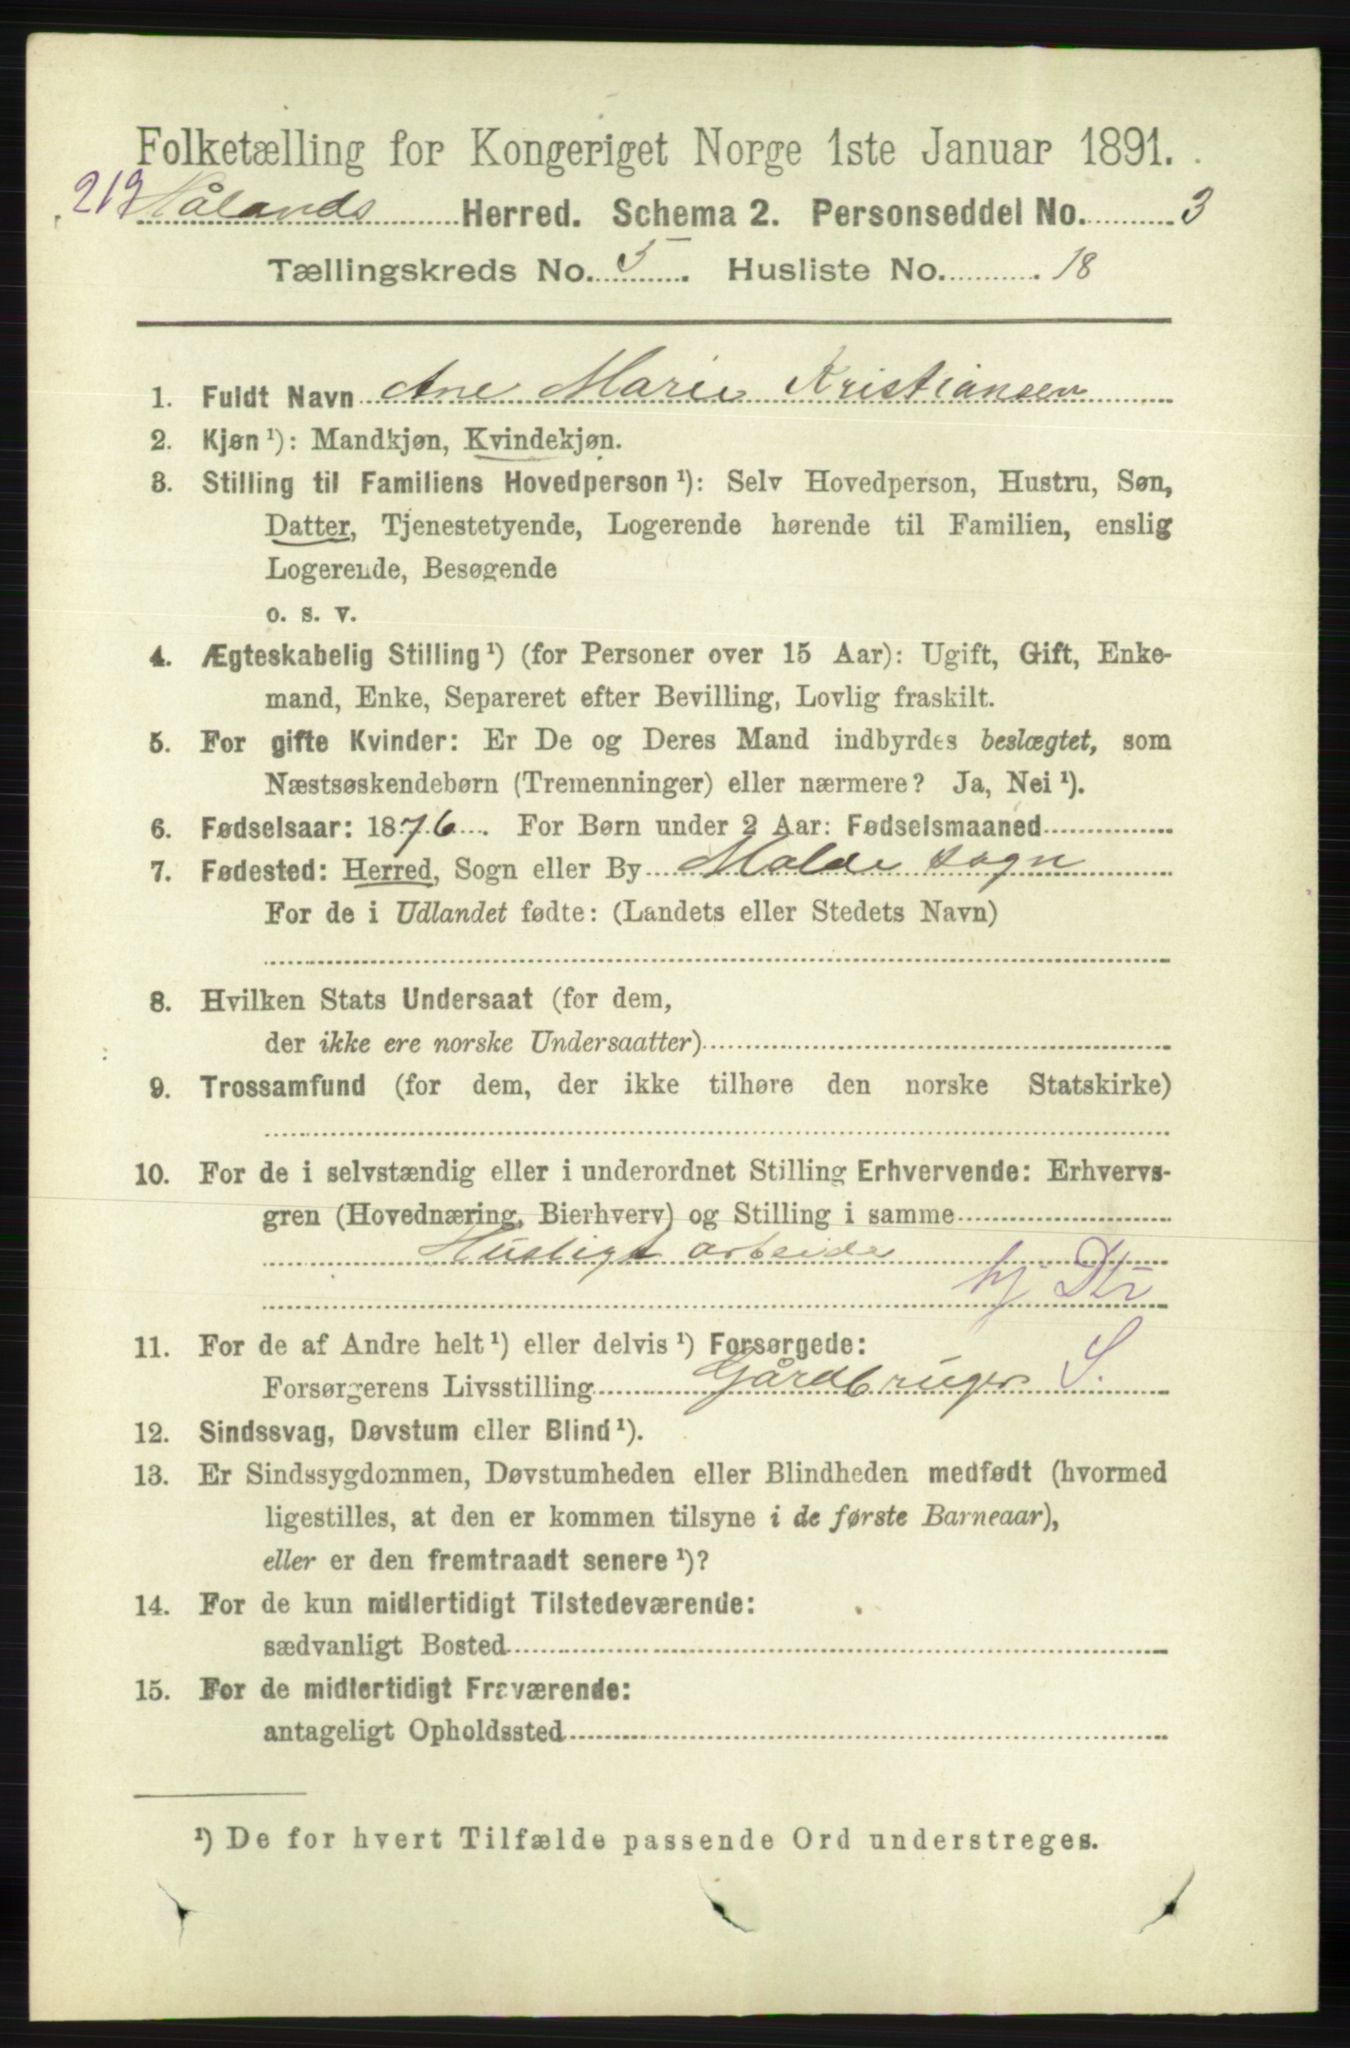 Folketælling for Kongeriget Norge 1ste Januar 1891.
212 Hålands Herred. Schema 2. Personseddel No. 3
Tællingskreds No. 5. Husliste No. 18
1. Fuldt Navn Ane Marie Kristiansen
2. Kjøn ¹): Mandkjøn, Kvindekjøn.
3. Stilling til Familiens Hovedperson ¹): Selv Hovedperson, Hustru, Søn,
Datter, Tjenestetyende, Logerende hørende til Familien, enslig
Logerende, Besøgende
o. s. v.
4. Ægteskabelig Stilling ¹) (for Personer over 15 Aar): Ugift, Gift, Enke-
mand, Enke, Separeret efter Bevilling, Lovlig fraskilt.
5. For gifte Kvinder: Er De og Deres Mand indbyrdes beslægtet, som
Næstsøskendebørn (Tremenninger) eller nærmere? Ja, Nei ¹).
6. Fødselsaar: 1876. For Børn under 2 Aar: Fødselsmaaned
7. Fødested: Herred, Sogn eller By Malde sogn
For de i Udlandet fødte: (Landets eller Stedets Navn)
8. Hvilken Stats Undersaat (for dem,
der ikke ere norske Undersaatter)
9. Trossamfund (for dem, der ikke tilhøre den norske Statskirke)
10. For de i selvstændig eller i underordnet Stilling Erhvervende: Erhvervs-
gren (Hovednæring, Bierhverv) og Stilling i samme
Husligt arbeide
hj Dtr
11. For de af Andre helt ¹) eller delvis ¹) Forsørgede:
Forsørgerens Livsstilling Gårdbruger S.
12. Sindssvag, Døvstum eller Blind ¹).
13. Er Sindssygdommen, Døvstumheden eller Blindheden medfødt (hvormed
ligestilles, at den er kommen tilsyne i de første Barneaar),
eller er den fremtraadt senere ¹)?
14. For de kun midlertidigt Tilstedeværende:
sædvanligt Bosted
15. For de midlertidigt Fraværende:
antageligt Opholdssted
¹) De for hvert Tilfælde passende Ord understreges.